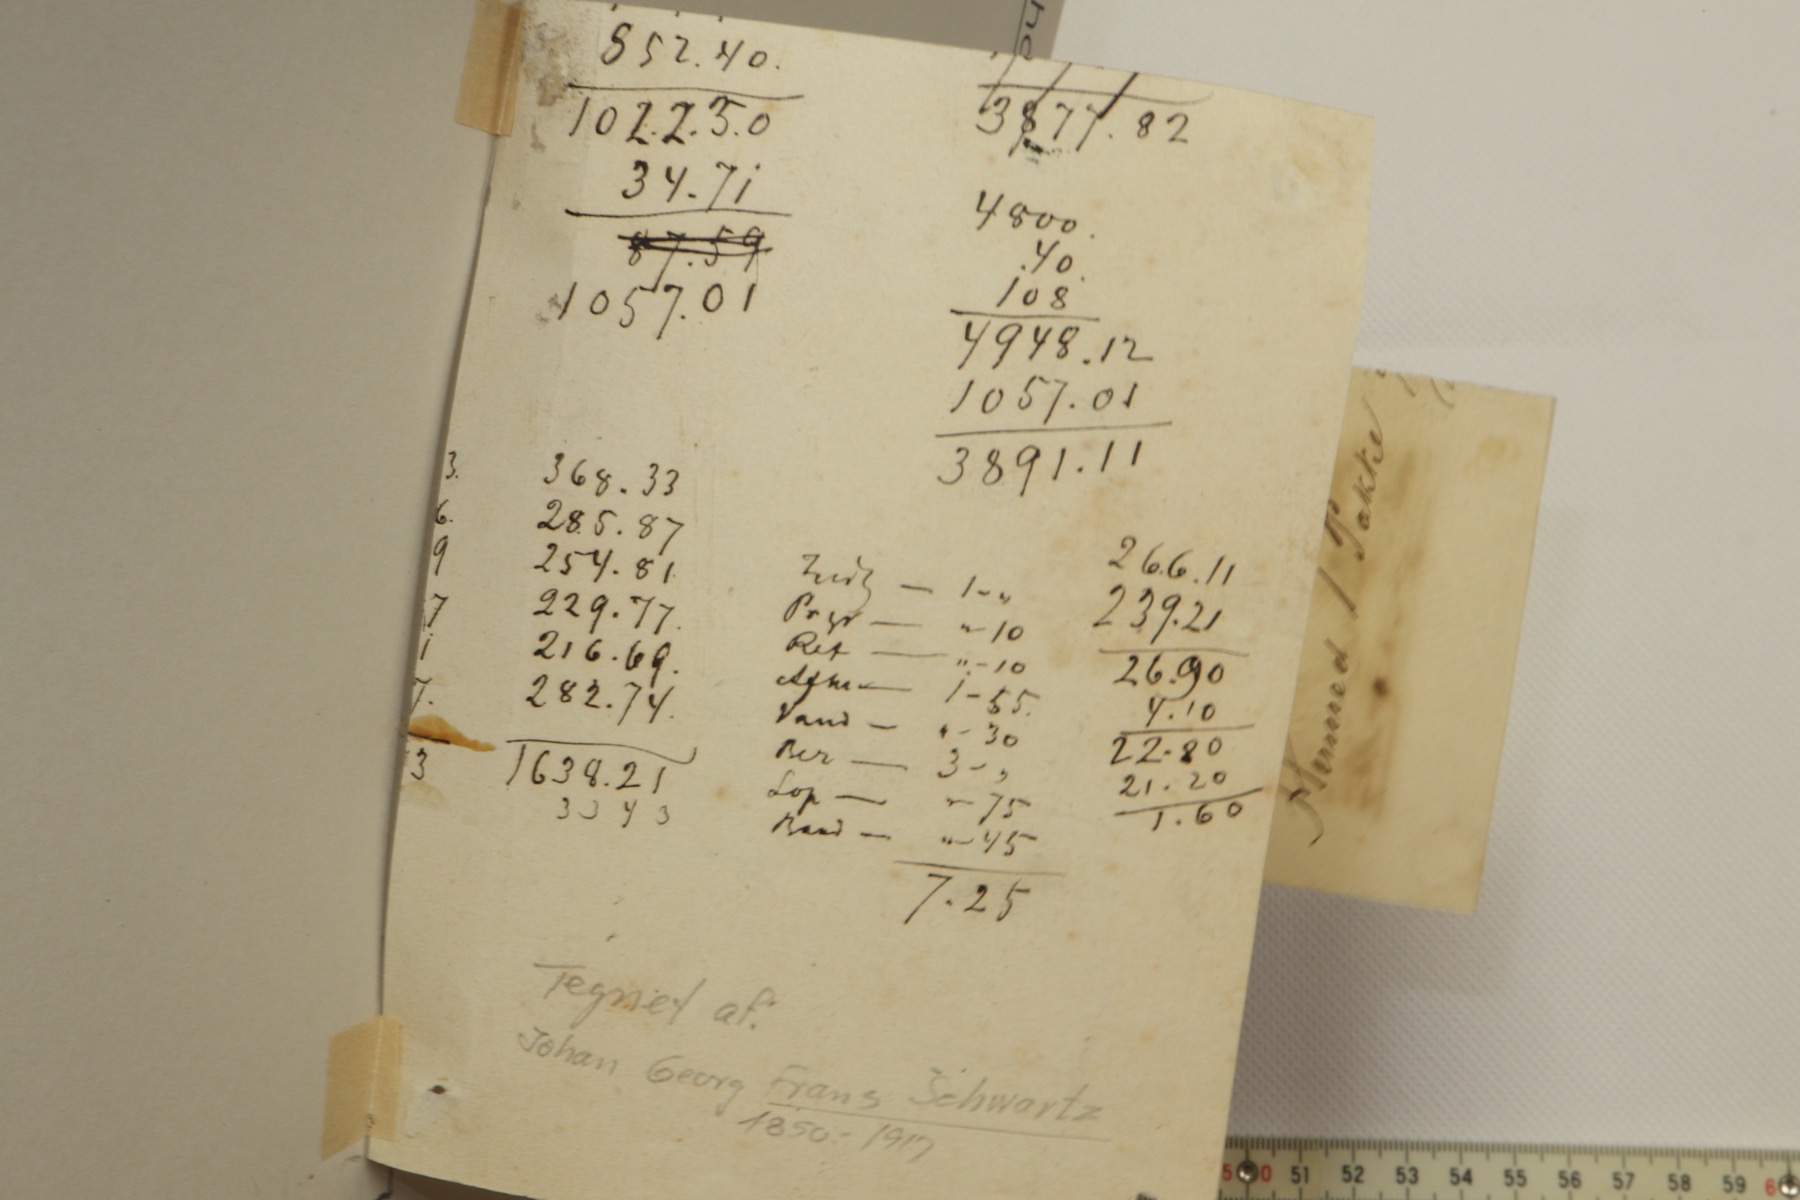 852.40.
1022.50
34.71
87.59
1057.01
3877.82
4800.
.40.
108
4948.12
1057.01
3891.11
3. 368.33
6. 285.87
9 254.81
7 229.77.
1 216.69.
7. 282.74.
3 1638.21
3343
— 1-"
— "-10
Ret — "-10
— 1-55.
Vand — "-30
— 3-"
— "-75
— "-45
7.25
266.11
239.21
26.90
4.10
22.80
21.20
1.60
Tegnet af:
Johan Georg Frans Schwartz
1850-1917
1 Pakke
51 52 53 54 55 56 57 58 59